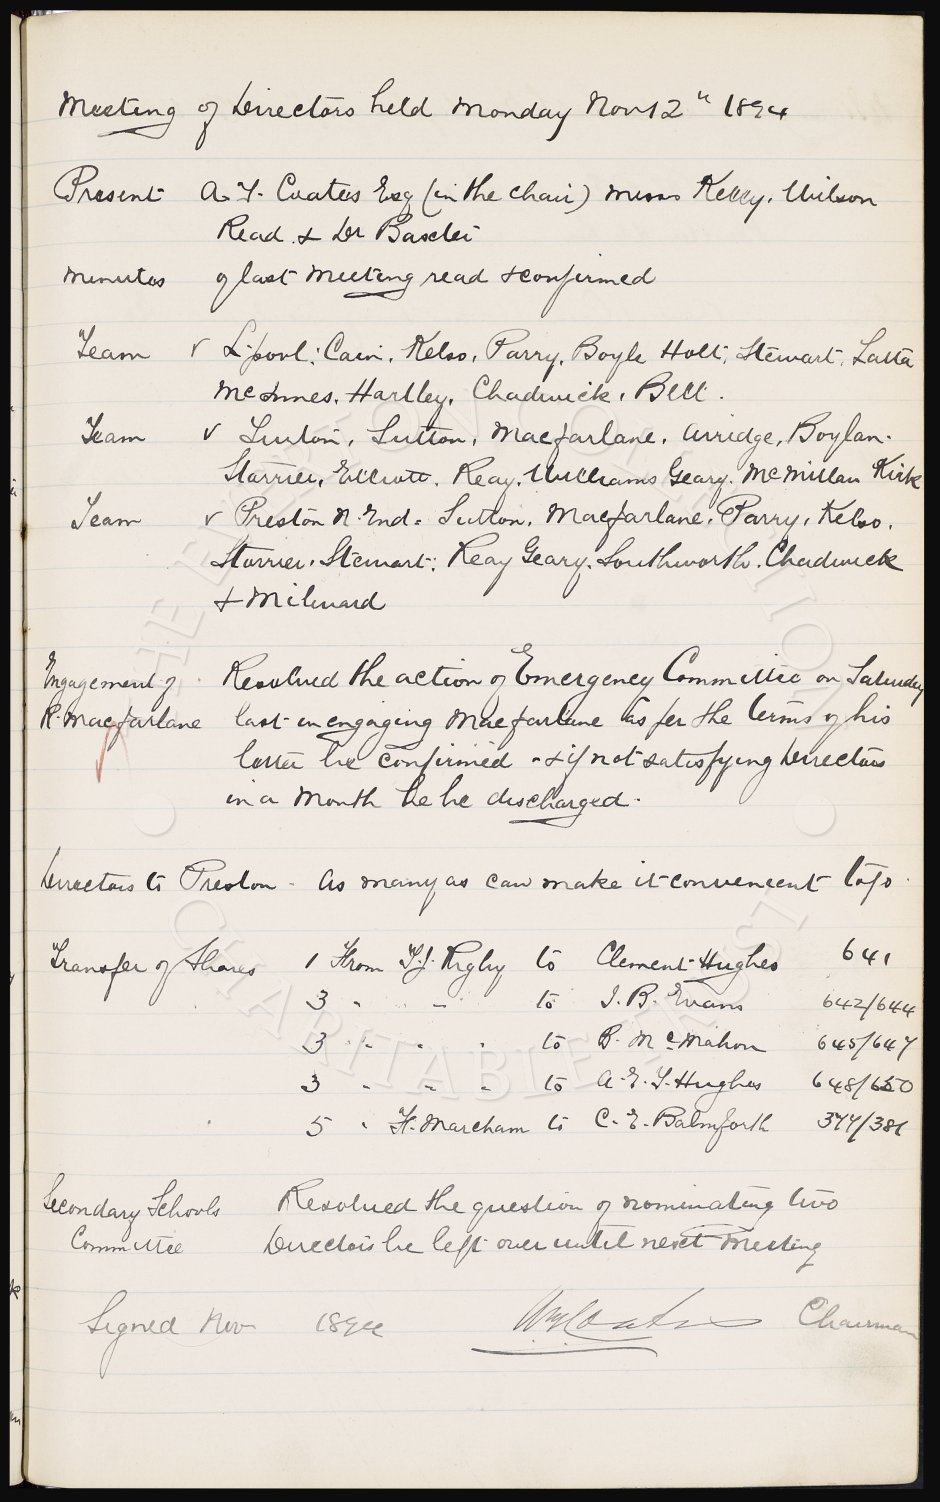 Meeting of Directors held Monday Nov 12th 1894
Present A. T. Coates Esq (in the chair) Messrs Kelly, Wilson
Read & Dr Baxter
Minutes of last Meeting read & confirmed
Team v L'pool: Cain, Kelso, Parry, Boyle Holt, Stewart, Latta
McInnes, Hartley, Chadwick, Bell.
Team v Luton, Sutton, Macfarlane, Arridge, Boylan.
Storrier, Elliott, Reay, Williams Geary, McMillan Kirk
Team v Preston N. End = Sutton, Macfarlane, Parry, Kelso,
Storrier, Stewart, Reay Geary, Southworth, Chadwick
& Milward
Engagement of R. Macfarlane
Resolved the action of Emergency Committee on Saturday
last in engaging Macfarlane as per the terms of his
letter be confirmed - & if not satisfying Directors
in a Month he be discharged.
Directors to Preston - As many as can make it convenient to go.
Transfer of Shares 1 From T. J. Rigby to Clement Hughes 641
3 " " - to J. B. Evans 642/644
3 " " " to B. McMahon 645/647
3 " " " to A. E. T. Hughes 648/650
5 " H. Marcham to C. E. Balmforth 377/381
Secondary Schools Committee
Resolved the question of nominating two
Directors be left over until next Meeting
Signed Nov 1894 Wm Coates Chairman
THE EVERTON COLLECTION
CHARITABLE TRUST